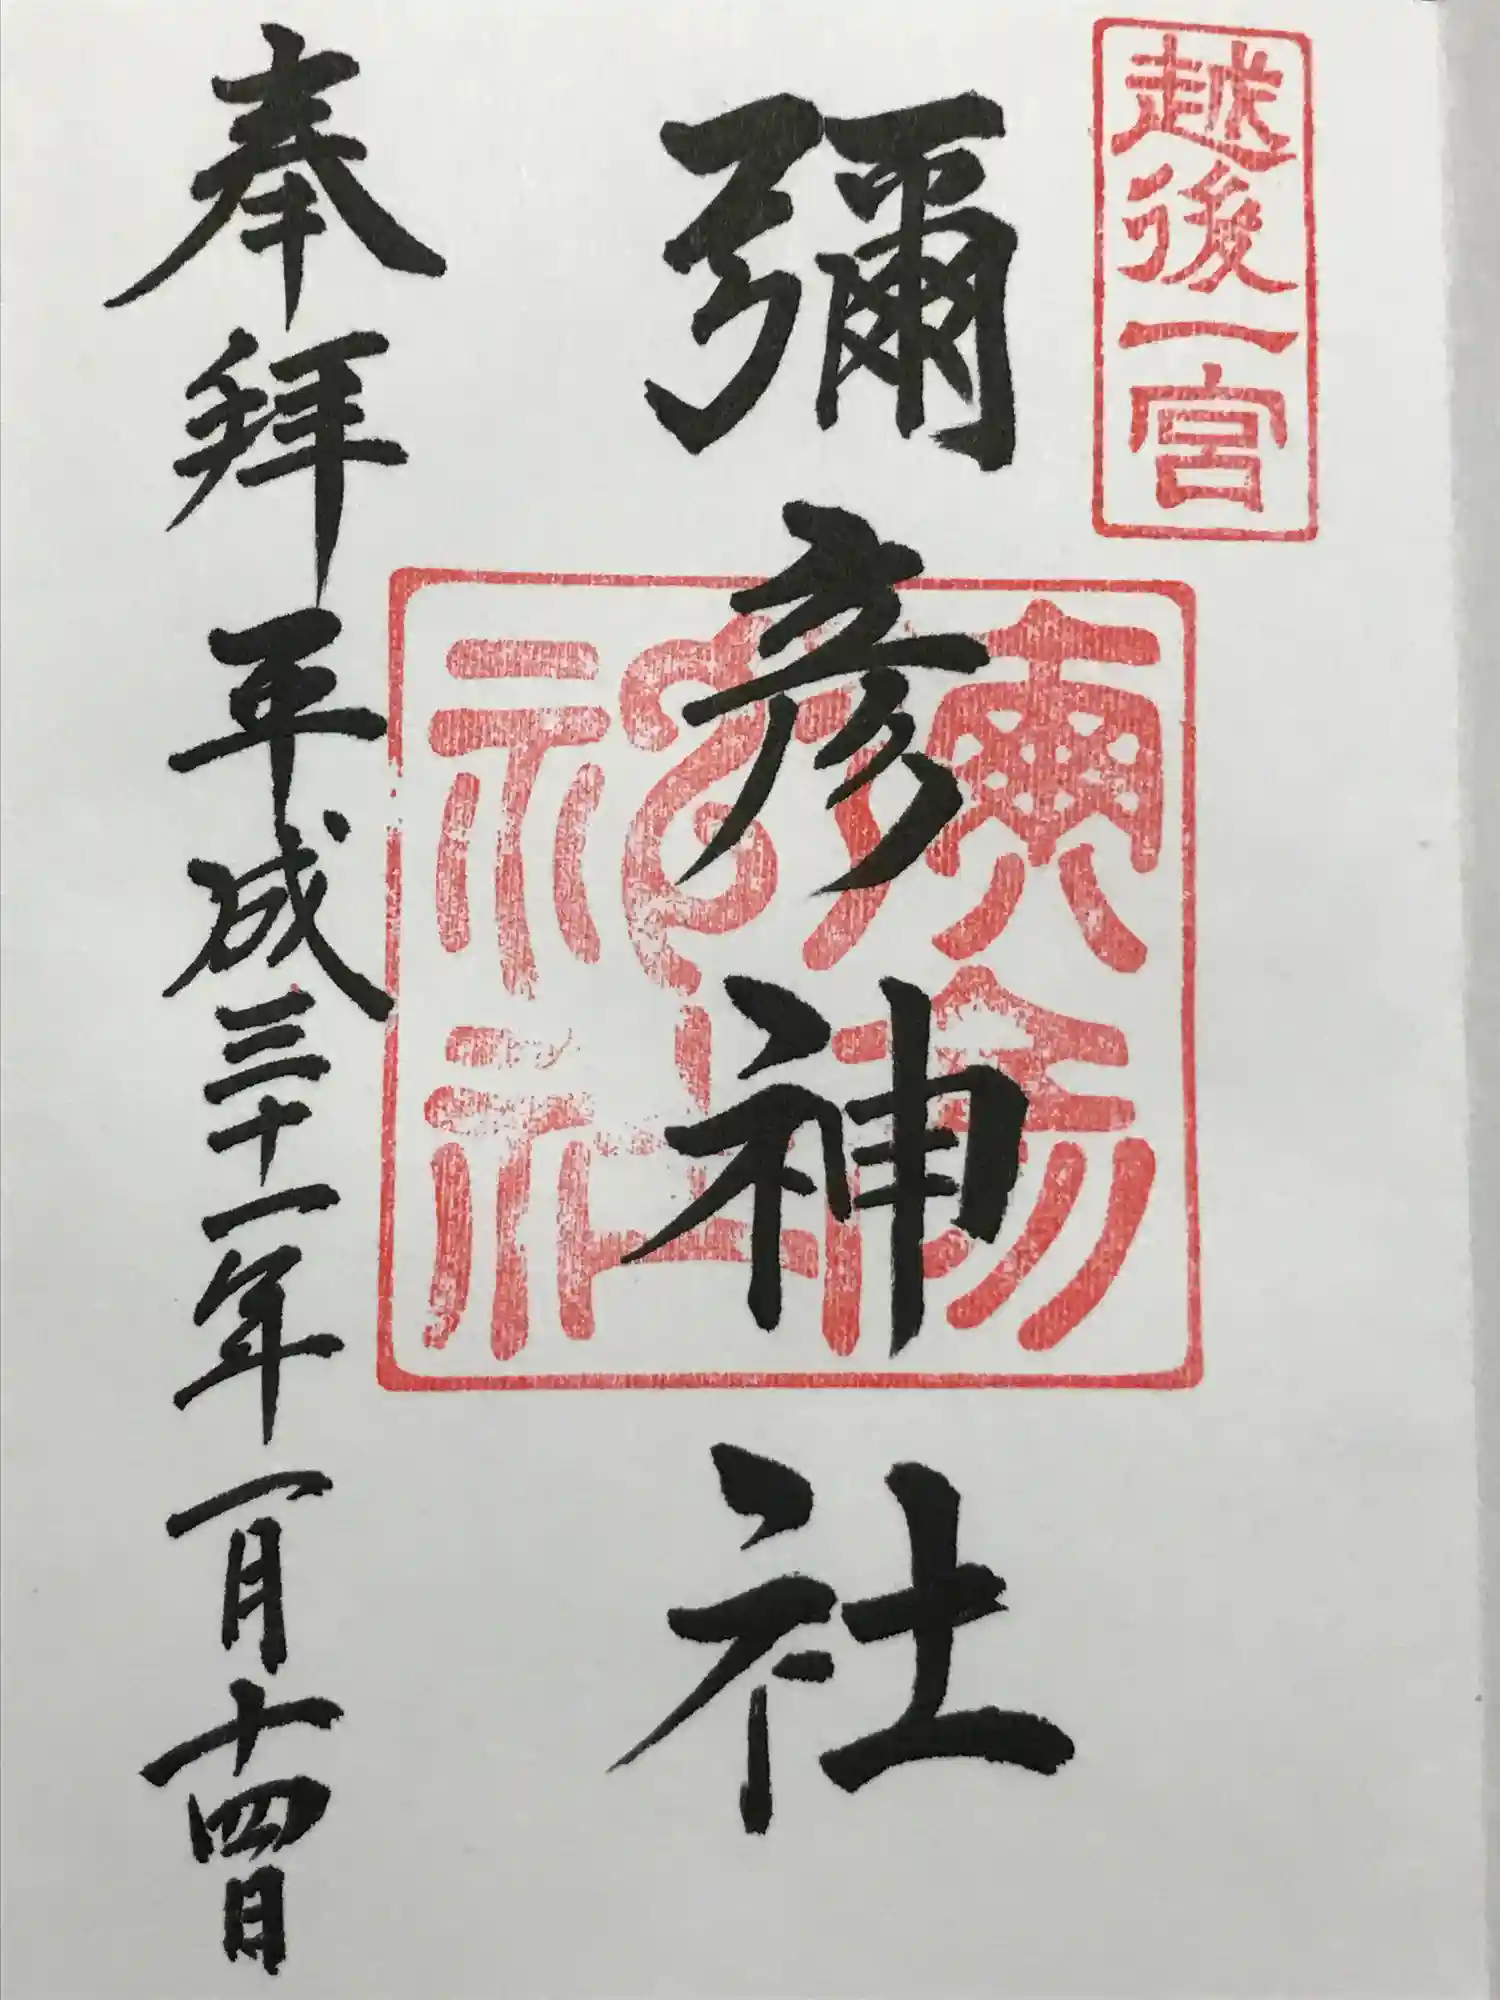 越後一宮
彌彦神社
彌彦神社
奉拝 平成三十一年一月十四日